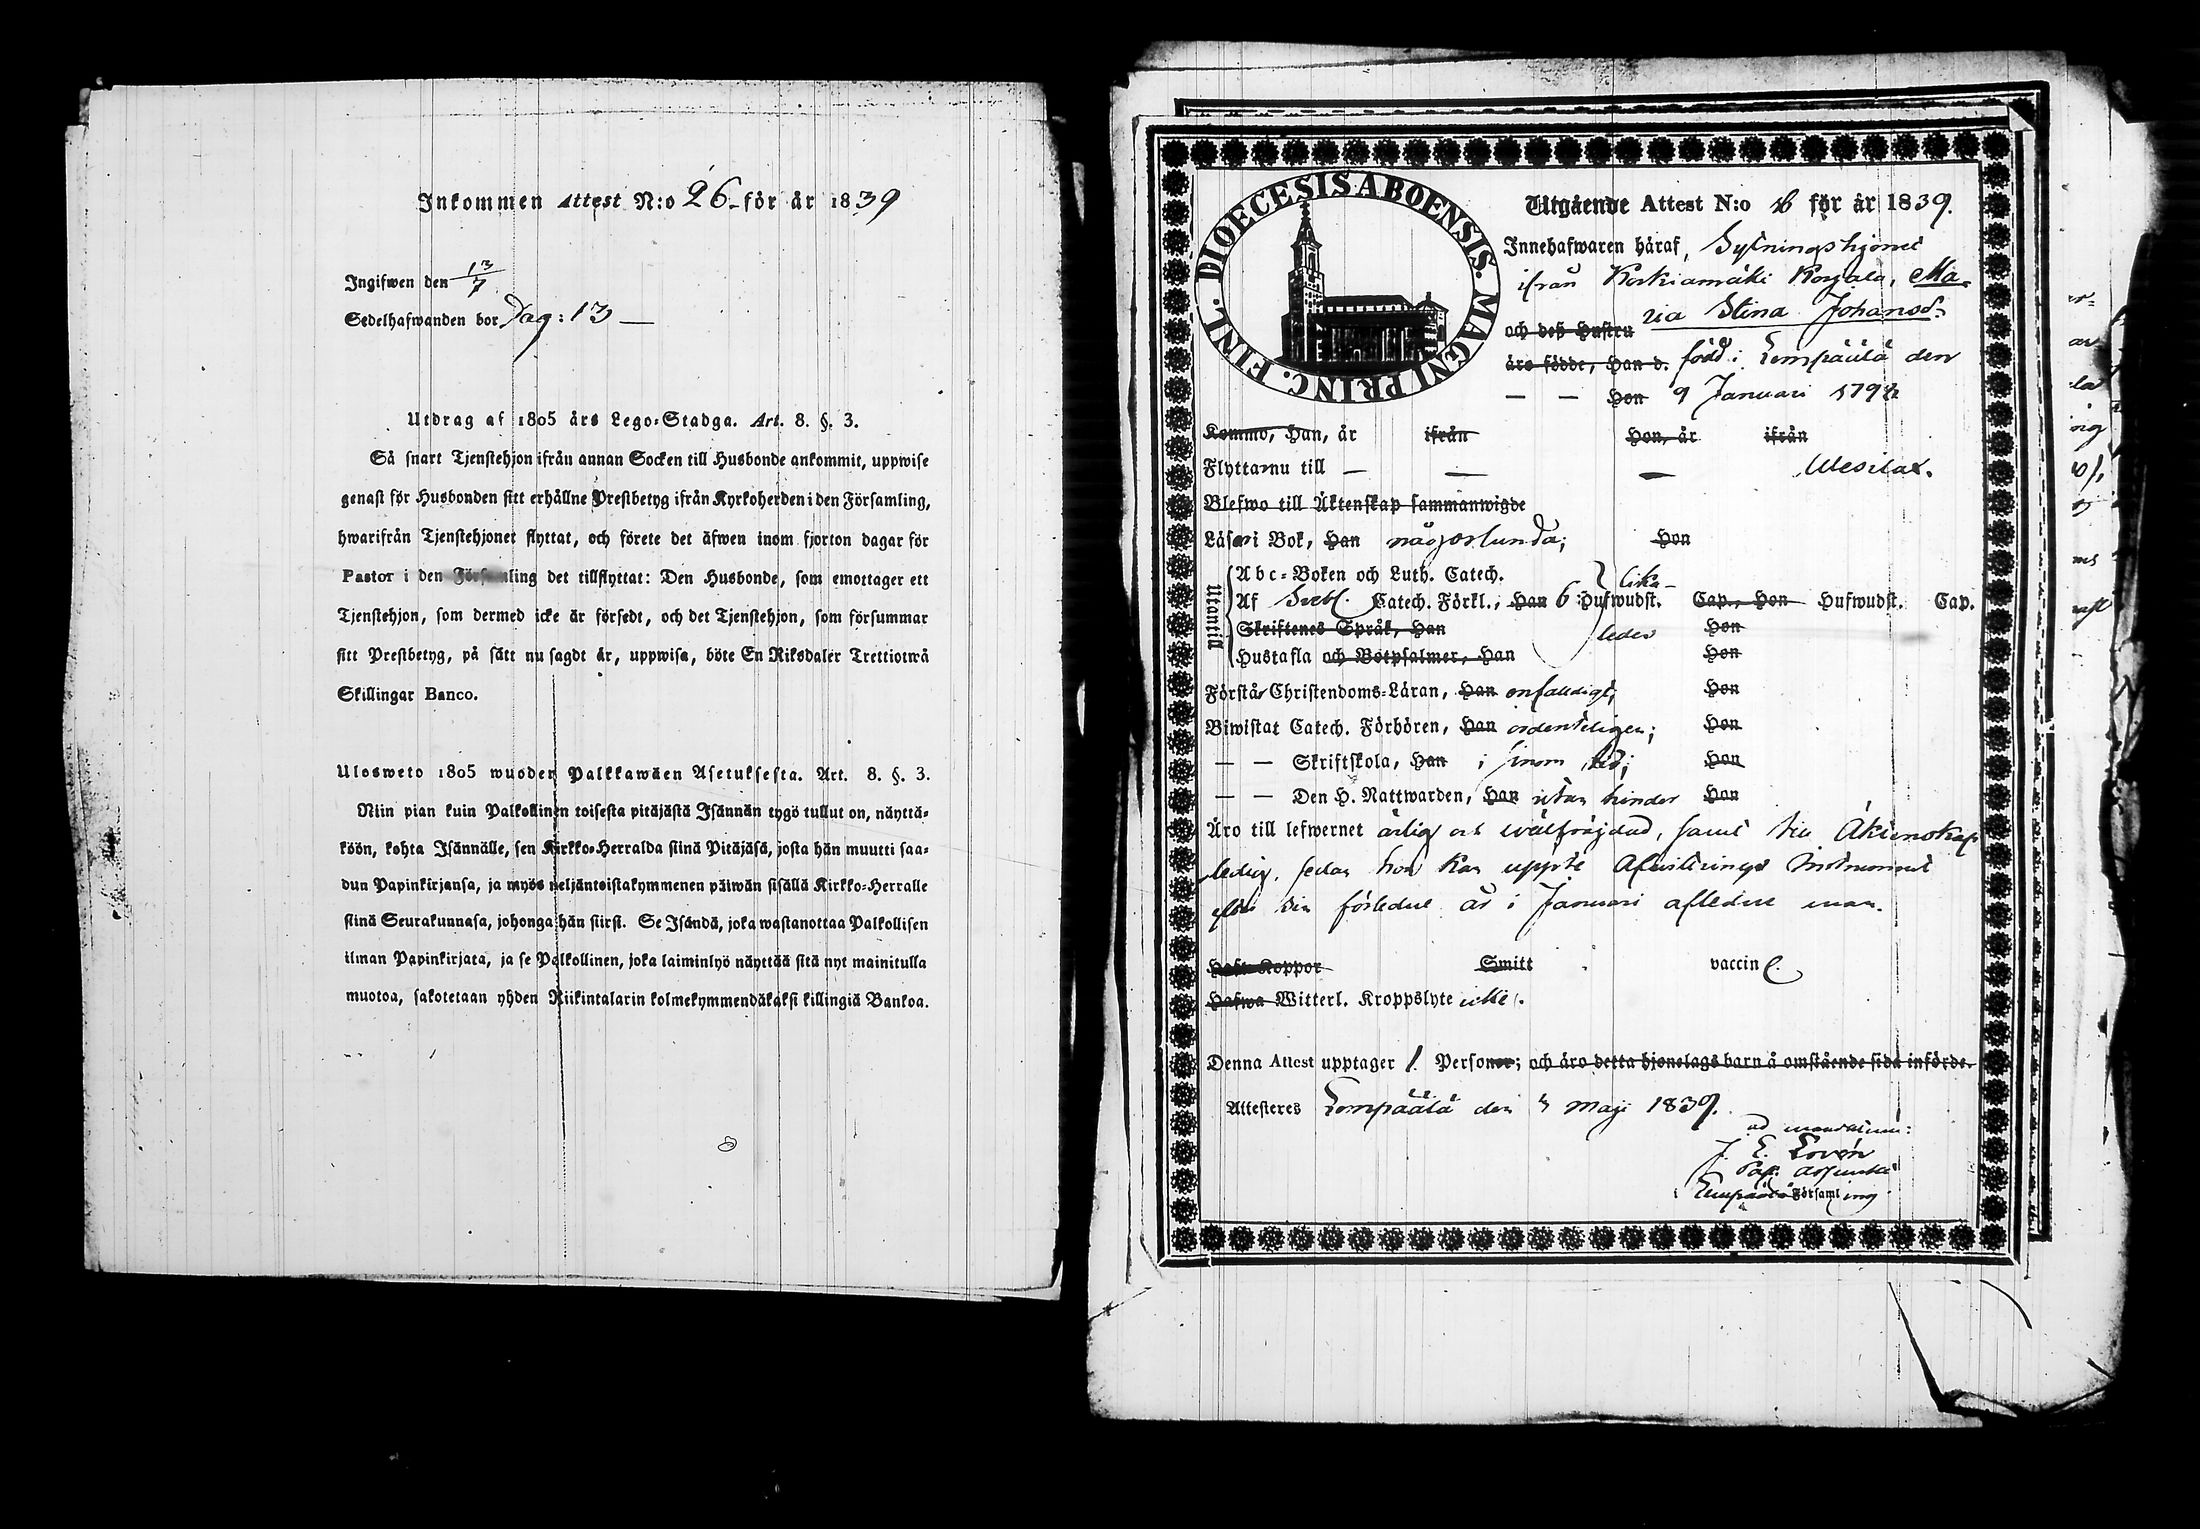 Inkommen Attest N:o 26 för år 1839
Ingifwen den 13/7
Sedelhafwanden bor Dag: 13
Utdrag af 1805 års Lego-Stadga. Art. 8. §. 3.
Så snart Tjenstehjon ifrån annan Socken till Husbonde ankommit, uppwise
genast för Husbonden sitt erhållne Prestbetyg ifrån Kyrkoherden i den Församling,
hwarifrån Tjenstehjonet flyttat, och förete det äfwen inom fjorton dagar för
Pastor i den Församling det tillflyttat: Den Husbonde, som emottager ett
Tjenstehjon, som dermed icke är försedt, och det Tjenstehjon, som försummar
sitt Prestbetyg, på sätt nu sagdt är, uppwisa, böte En Riksdaler Trettiotwå
Skillingar Banco.
Ulosweto 1805 wuoden Palkkawäen Asetuksesta. Art. 8. §. 3.
Niin pian kuin Palkollinen toisesta pitäjästä Isännän tygö tullut on, näyttä-
köön, kohta Isännälle, sen Kirkko-Herralda siinä Pitäjäsä, josta hän muutti saa-
dun Papinkirjansa, ja myös neljäntoistakymmenen päiwän sisällä Kirkko-Herralle
siinä Seurakunnasa, johonga hän siirsi. Se Isändä, joka wastanottaa Palkollisen
ilman Papinkirjata, ja se Palkollinen, joka laiminlyö näyttää sitä nyt mainitulla
muotoa, sakotetaan yhden Riikintalarin kolmekymmendäkaksi killingiä Bankoa.
DIOECESIS ABOENSIS. MAGNI PRINC. FINL.
Utgående Attest N:o för år 1839.
Innehafwaren häraf, Sytningshjonet
ifrån Korkiamäki Korjala, Ma-
och deß Hustru ria Stina Johansd:
äro födde, Han d. född i Lempäälä den
— — Hon 9 Januari
Kommo, Han, år ifrån Hon, år ifrån
Flyttarnu till — — — Wesilax.
Blefwo till Äktenskap sammanwigde
Läser i Bok, Han någorlunda; Hon
Utantill
Abc-Boken och Luth. Catech. lika-
Af Svebl. Catech. Förkl., Han 6 Hufwudst. Cap., Hon Hufwudst. Cap.
Skriftenes Språk, Han ledes Hon
Hustafla och Botpsalmer, Han Hon
Förstår Christendoms-Läran, Han enfaldigt; Hon
Biwistat Catech. Förhören, Han ordenteligen; Hon
— — Skriftskola, Han i sinom tid; Hon
— — Den H. Nattwarden, Han utan hinder Hon
Äro till lefwernet ärlig och wälfräjdad, samt till Äktenskap
ledig, sedan hon har uppte Afwittrings Instrument
efter sin förledne år i Januari afledne man.
Haft Koppor Smitt vaccin
Hafwa Witterl. Kroppslyte icke.
Denna Attest upptager 1. Personer; och äro detta hjonelags barn å omstående sida införde.
Attesteres Lempäälä den Maji 1839.
ad mandatum:
J. E. Lovén
Past. Adjunkt
i Lempäälä Församling